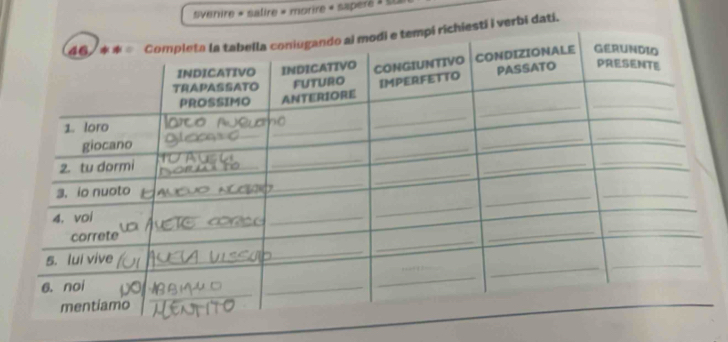 svenire * salire * morire * sapere *
46. ** Completa la tabella coniugando ai modi e tempi richiesti i verbi dati.
INDICATIVO TRAPASSATO PROSSIMO
INDICATIVO FUTURO ANTERIORE
CONGIUNTIVO IMPERFETTO
CONDIZIONALE PASSATO
GERUNDIO PRESENTE
1. loro giocano
giocato
2. tu dormi
TU AVEVI DORMITO
3. io nuoto
4. voi correte
VOI AVETE CORSO
5. lui vive
LUI AVEVA VISSUTO
6. noi mentiamo
NOI ABBIAMO MENTITO